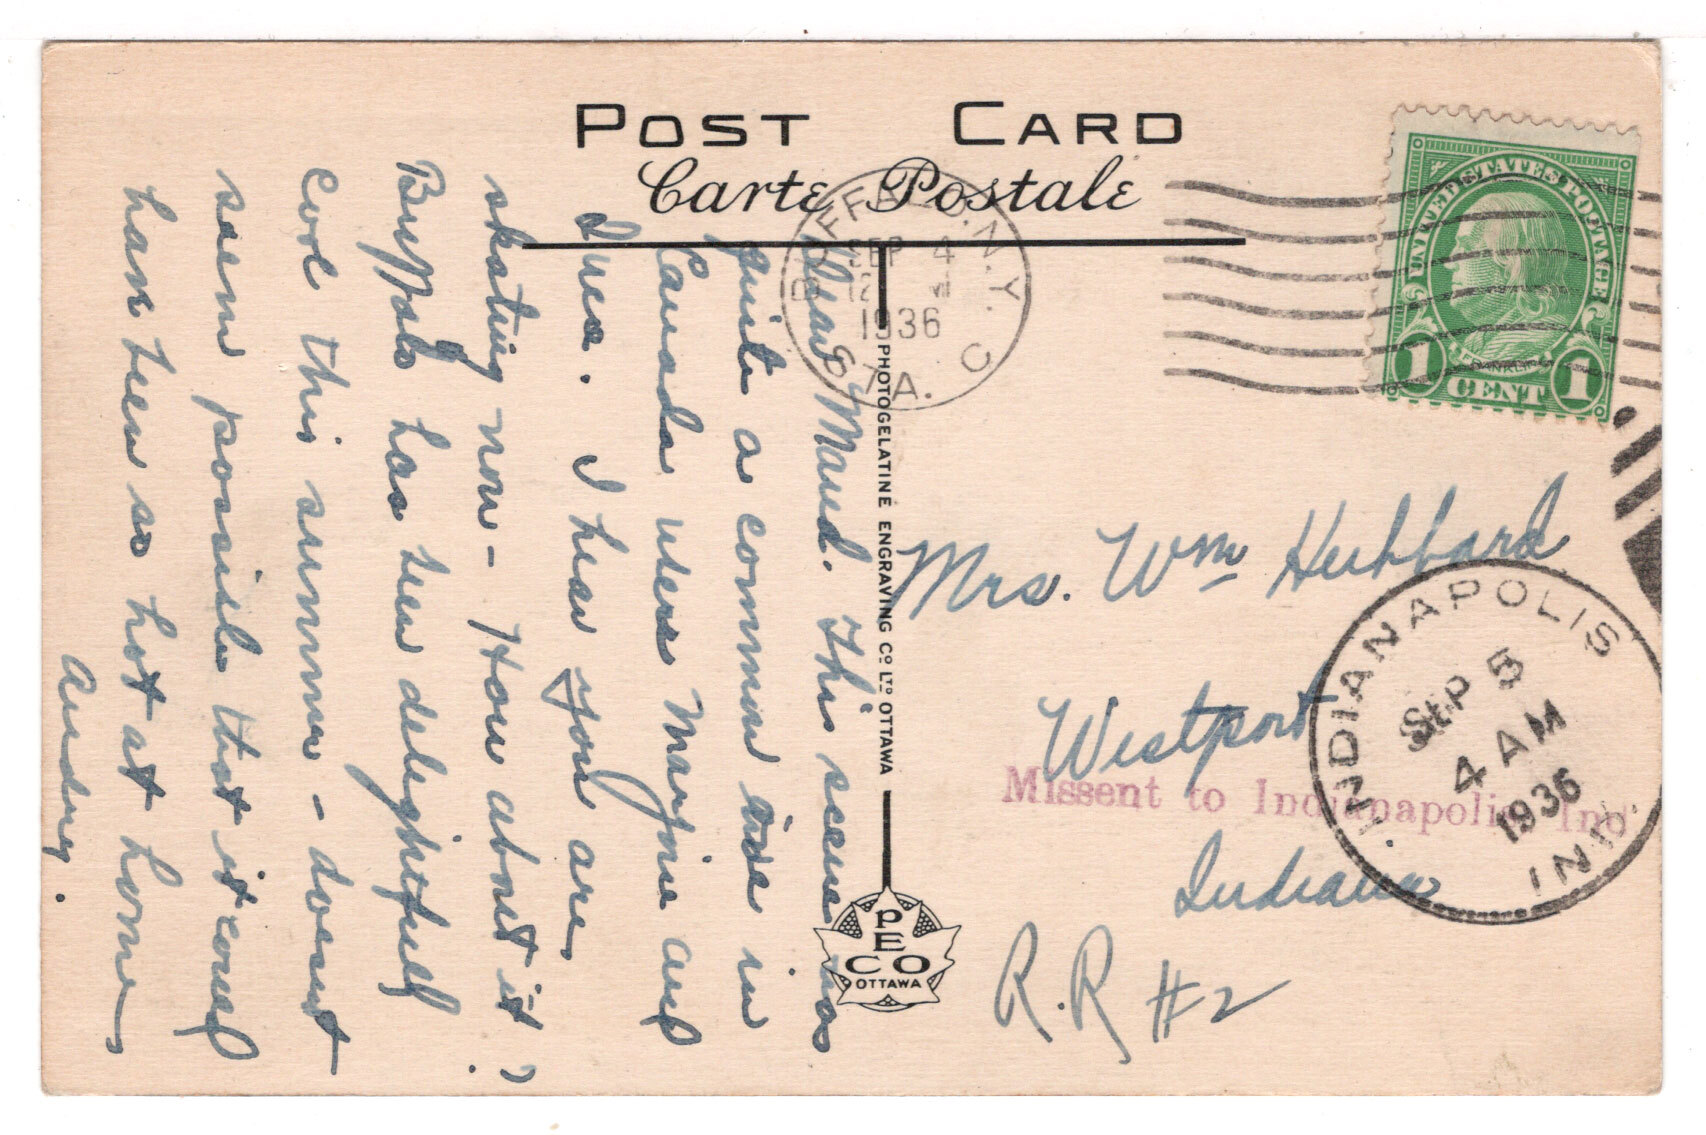 POST CARD
Carte Postale
BUFFALO, N.Y.
SEP 4
12 M
1936
7A.
UNITED STATES POSTAGE
FRANKLIN
1 CENT 1
Dear Maud. This scene was
quite a common one in
Canada when Marjorie and
I was. I hear you are
skating now - How about it?
Buffalo has been delightfully
cool this summer - doesnt
seem possible that it could
have been so hot at home,
Audrey.
PHOTOGELATINE ENGRAVING CO LTD OTTAWA
PECO
OTTAWA
Mrs. Wm Hubbard
Westport
Indiana
R.R #2
Missent to Indianapolis, Ind
INDIANAPOLIS
SEP 5
4 AM
1936
IND.